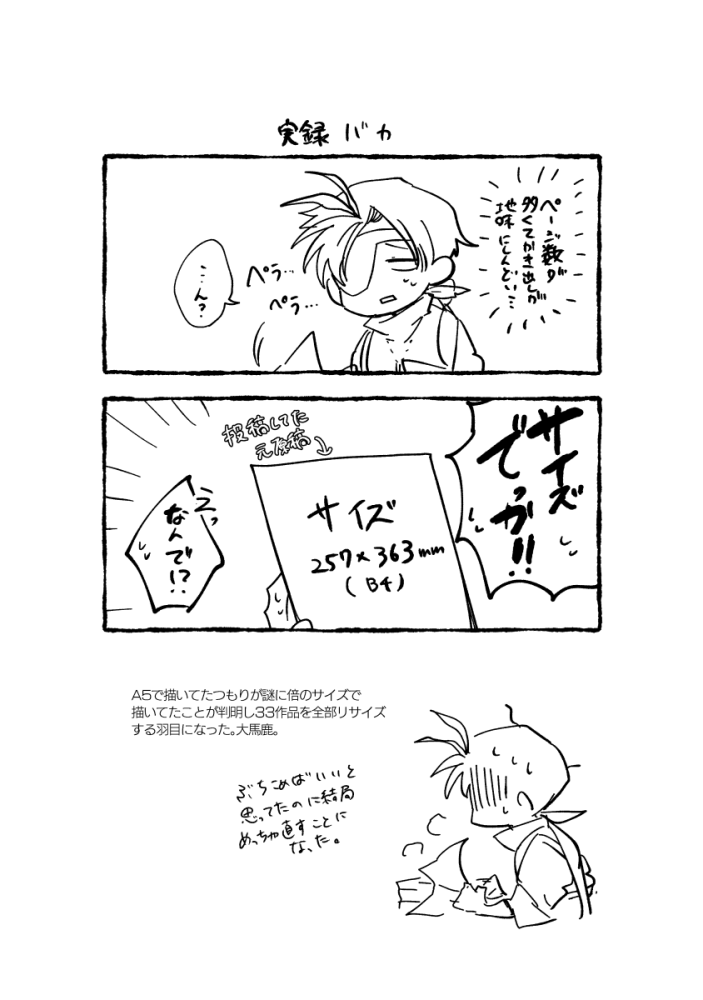 実録 バカ
ページ数が
多くてかき出しが
地味にしんどい…
ペラ…
ペラ…
…ん?
サイズ
でっか!!
投稿してた
元原稿
サイズ
257×363mm
(B4)
えっ
なんで!?
A5で描いてたつもりが謎に倍のサイズで
描いてたことが判明し33作品を全部リサイズ
する羽目になった。大馬鹿。
ぶちこめばいいと
思ってたのに結局
めっちゃ直すことに
なった。